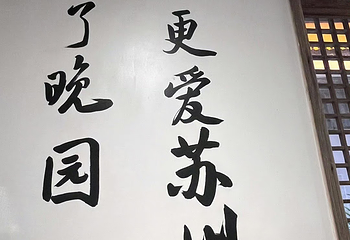 更爱苏州
了晚园